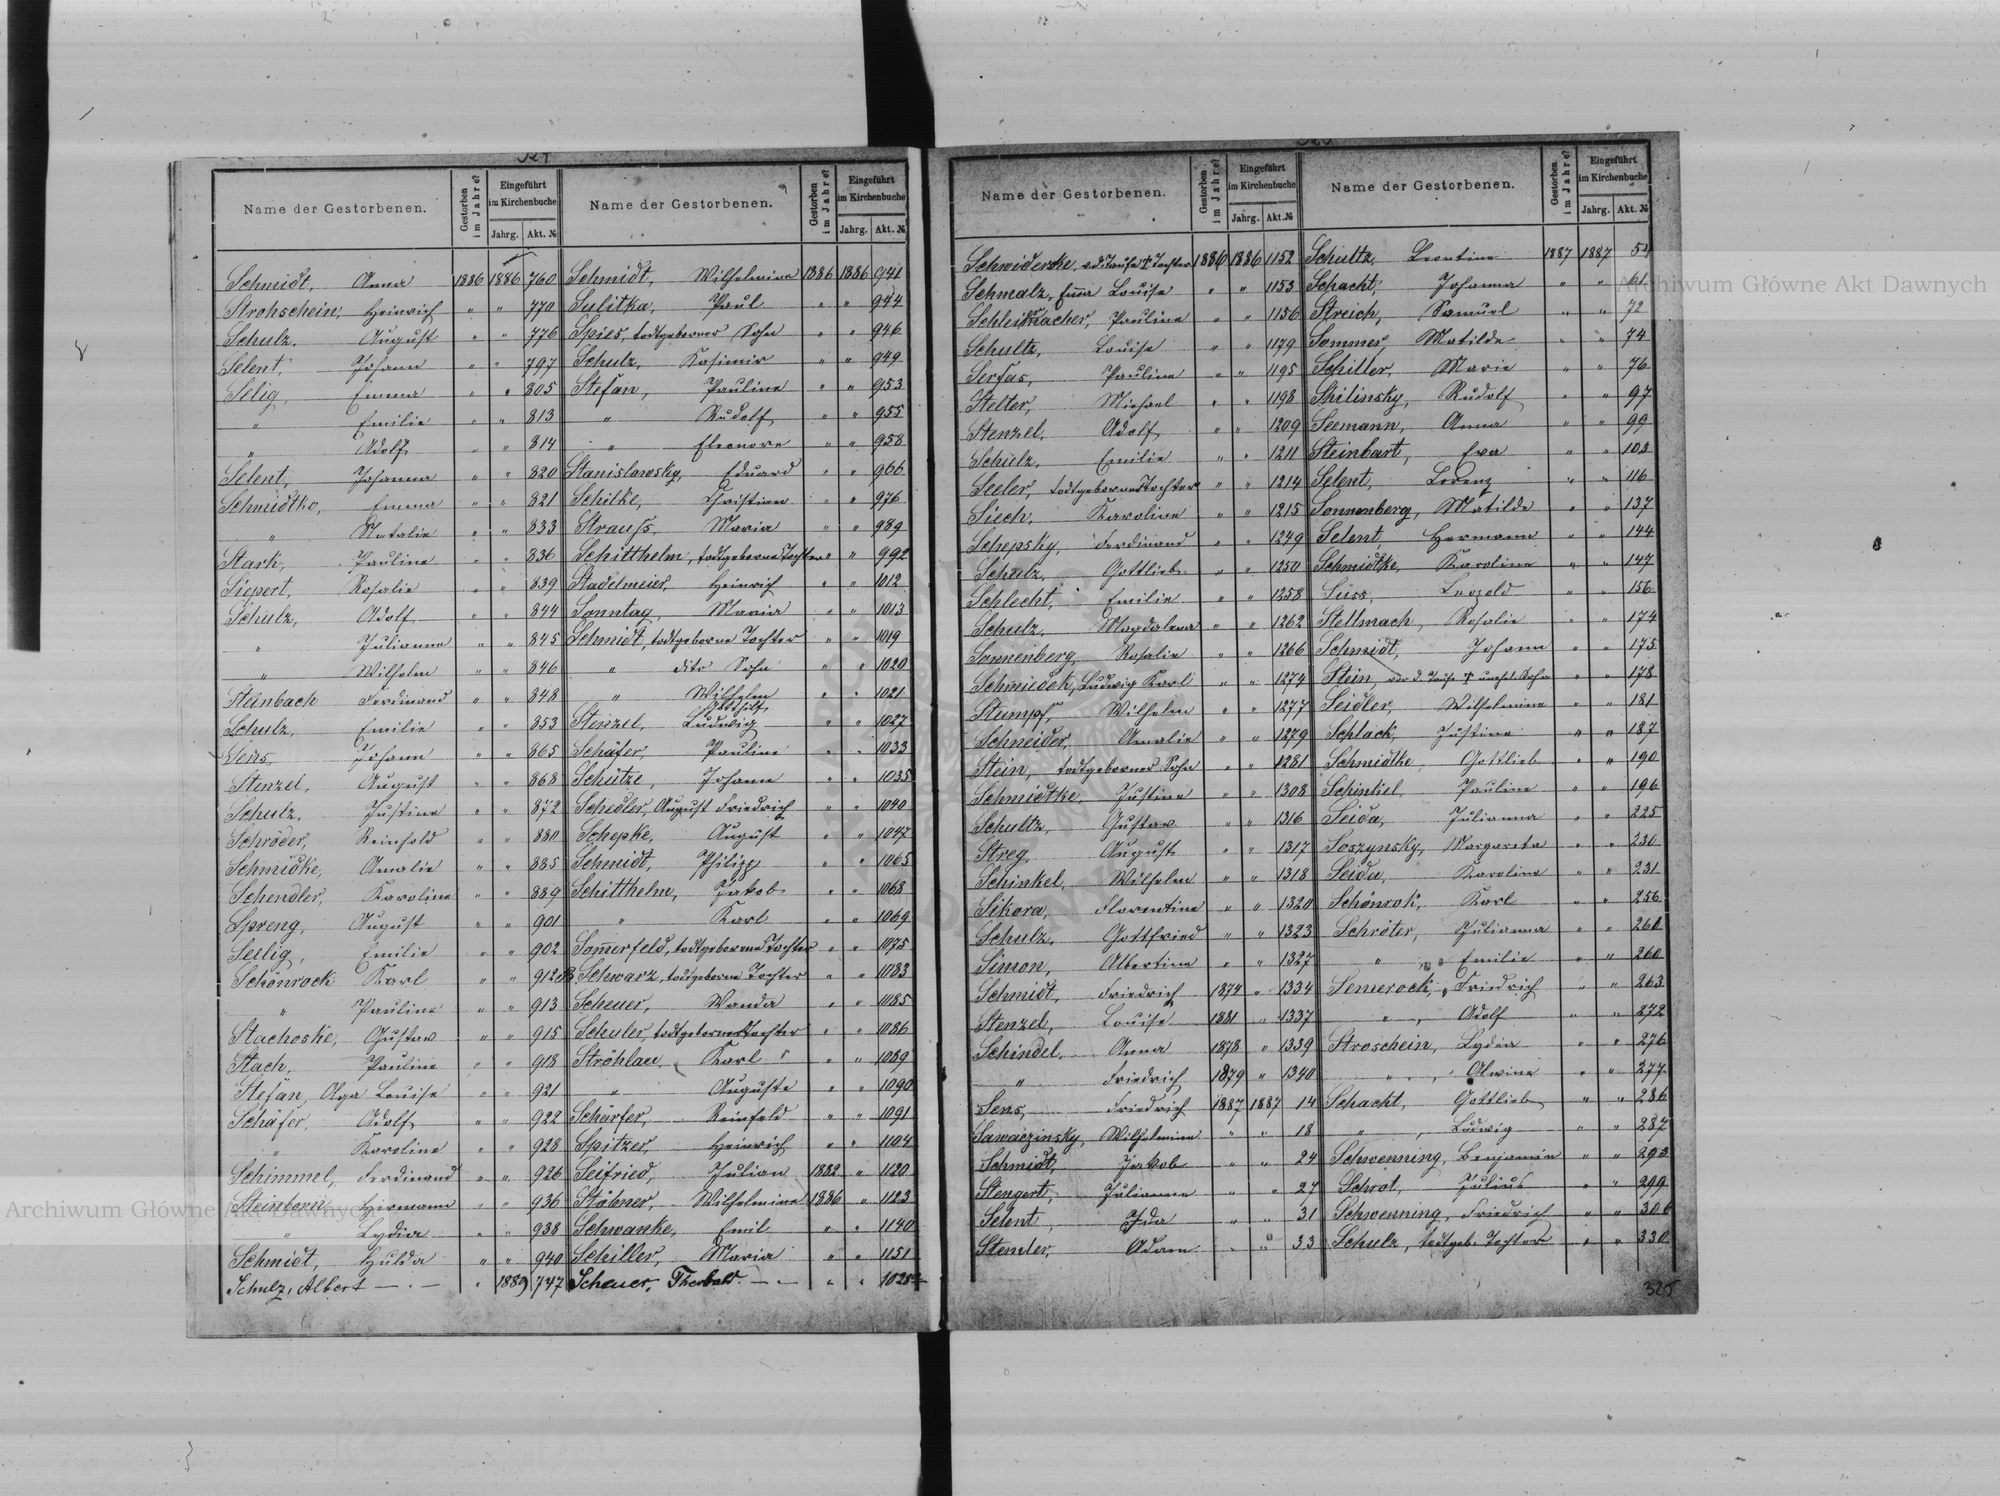 324
Name der Gestorbenen. Gestorben im Jahre? Eingeführt im Kirchenbuche Jahrg. Akt. №
Schmidt, Anna 1886 1886 760
Strohschein, Heinrich " " 770
Schulz, August " " 776
Selent, Johann " " 797
Selig, Emma " " 805
" Emilie " " 813
" Adolf " " 814
Selent, Johanna " " 820
Schmidtke, Emma " " 821
" Natalie " " 833
Stark, Pauline " " 836
Siepert, Rosalie " " 839
Schulz, Adolf " " 844
" Julianne " " 845
" Wilhelm " " 846
Steinbach Ferdinand " " 848
Schulz, Emilie " " 853
Sens, Johann " " 865
Stenzel, August " " 868
Schulz, Justine " " 872
Schröder, Reinhold " " 880
Schmidke, Amalie " " 885
Schendler, Karoline " " 889
Spreng, August " " 901
Seelig, Emilie " " 902
Schönrock Karl " " 912
" Pauline " " 913
Stachoske, Gustav " " 915
Stach, Pauline " " 918
Stefan, Olga Louise " " 921
Schäfer, Adolf " " 922
" Karoline " " 928
Schimmel, Ferdinand " " 926
Steinborn Hermann " " 936
" Lydia " " 938
Schmidt, Hulda " " 940
Schulz, Albert — . — " 1889 747
Name der Gestorbenen. Gestorben im Jahre? Eingeführt im Kirchenbuche Jahrg. Akt. №
Schmidt, Wilhelmine 1886 1886 941
Sulitka, Paul " " 944
Spies, todtgeborner Sohn " " 946
Schulz, Kasimir " " 949
Stefan, Pauline " " 953
" Rudolf " " 955
" Eleonore " " 958
Stanislowsky, Eduard " " 966
Schilke, Christian " " 976
Strauss, Maria " " 989
Schitthelm, todtgeborne Tochter " " 992
Stadelmeier, Heinrich " " 1012
Sonntag, Maria " " 1013
Schmidt, todtgeborne Tochter " " 1019
" dito Sohn " " 1020
" Wilhelm " " 1021
Stenzel, Gotthilf Ludwig " " 1027
Schäfer, Pauline " " 1033
Schütze, Johann " " 1035
Schedler, August Friedrich " " 1040
Schepke, August " " 1047
Schmidt, Philipp " " 1065
Schitthelm, Jakob " " 1068
" Karl " " 1069
Somerfeld, todtgeborne Tochter " " 1075
Schwarz, todtgeborne Tochter " " 1083
Scheuer, Wanda " " 1085
Schuler, todtgeborne Tochter " " 1086
Ströhlau, Karl " " 1089
" Auguste " " 1090
Schärfer, Reinhold " " 1091
Spitzer, Heinrich " " 1104
Seifried, Julian 1882 " 1120
Stäbner, Wilhelmine 1886 " 1123
Schwanke, Emil " " 1140
Schiller, Maria " " 1151
Scheuer, " "
Name der Gestorbenen. Gestorben im Jahre? Eingeführt im Kirchenbuche Jahrg. Akt. №
Schwiderke, v. d. Taufe † Tochter 1886 1886 1152
Schmalz, Emma Louise " " 1153
Schleimacher, Pauline " " 1156
Schultz, Louise " " 1179
Serfas, Pauline " " 1195
Stelter, Michael " " 1198
Stenzel, Adolf " " 1209
Schulz, Emilie " " 1211
Seeler, todtgeborne Tochter " " 1214
Siech, Karoline " " 1215
Schepsky, Ferdinand " " 1249
Schulz, Gottlieb " " 1250
Schlecht, Emilie " " 1258
Schulz, Magdalena " " 1262
Sonnenberg, Rosalie " " 1266
Schmiedek, Ludwig Karl " " 1274
Stumpf, Wilhelm " " 1277
Schneider, Amalie " " 1279
Stein, todtgeborner Sohn " " 1281
Schmidtke, Justine " " 1308
Schultz, Gustav " " 1316
Streg, August " " 1317
Schinkel, Wilhelm " " 1318
Sikora, Florentine " " 1320
Schulz, Gottfried " " 1323
Simon, Albertine " " 1327
Schmidt, Friedrich 1874 " 1334
Stenzel, Louise 1881 " 1337
Schindel, Anna 1878 " 1339
" Friedrich 1879 " 1340
Sens, Friedrich 1887 1887 14
Sawaczinsky, Wilhelmine " " 18
Schmidt, Jakob " " 24
Stengert, Julianne " " 27
Selent, Ida " " 31
Stemler, Adam " " 33
Name der Gestorbenen. Gestorben im Jahre? Eingeführt im Kirchenbuche Jahrg. Akt. №
Schultz, Leontine 1887 1887 54
Schacht, Johanna " " 61
Streich, Samuel " " 72
Sommer, Matilde " " 74
Schiller, Marie " " 76
Shilinsky, Rudolf " " 97
Seemann, Anna " " 99
Steinbart, Eva " " 103
Selent, Lorenz " " 116
Sonnenberg, Matilde " " 137
Selent Hermann " " 144
Schmidtke, Karoline " " 147
Süss, Leopold " " 156
Stellmach, Rosalie " " 174
Schmidt, Johann " " 175
Stein, vor d. Taufe † Sohn " " 178
Seidler, Wilhelmine " " 181
Schlack, Justine " " 187
Schmidtke, Gottlieb " " 190
Schinkel, Pauline " " 196
Seida, Julianna " " 225
Soszynsky, Margareta " " 230
Seida, Karoline " " 231
Schönrok, Karl " " 256
Schröter, Julianna " " 261
" Emilie " " 260
Semerock, Friedrich " " 263
" Adolf " " 272
Stroschein, Lydia " " 276
" Olwine " " 277
Schacht, Gottlieb " " 286
" Ludwig " " 287
Schwenning, Benjamin " " 293
Schrot, Julius " " 299
Schwenning, Friedrich " " 306
Schulz, todtgeb. Tochter " " 330
325
Archiwum Główne Akt Dawnych
Archiwum Główne Akt Dawnych